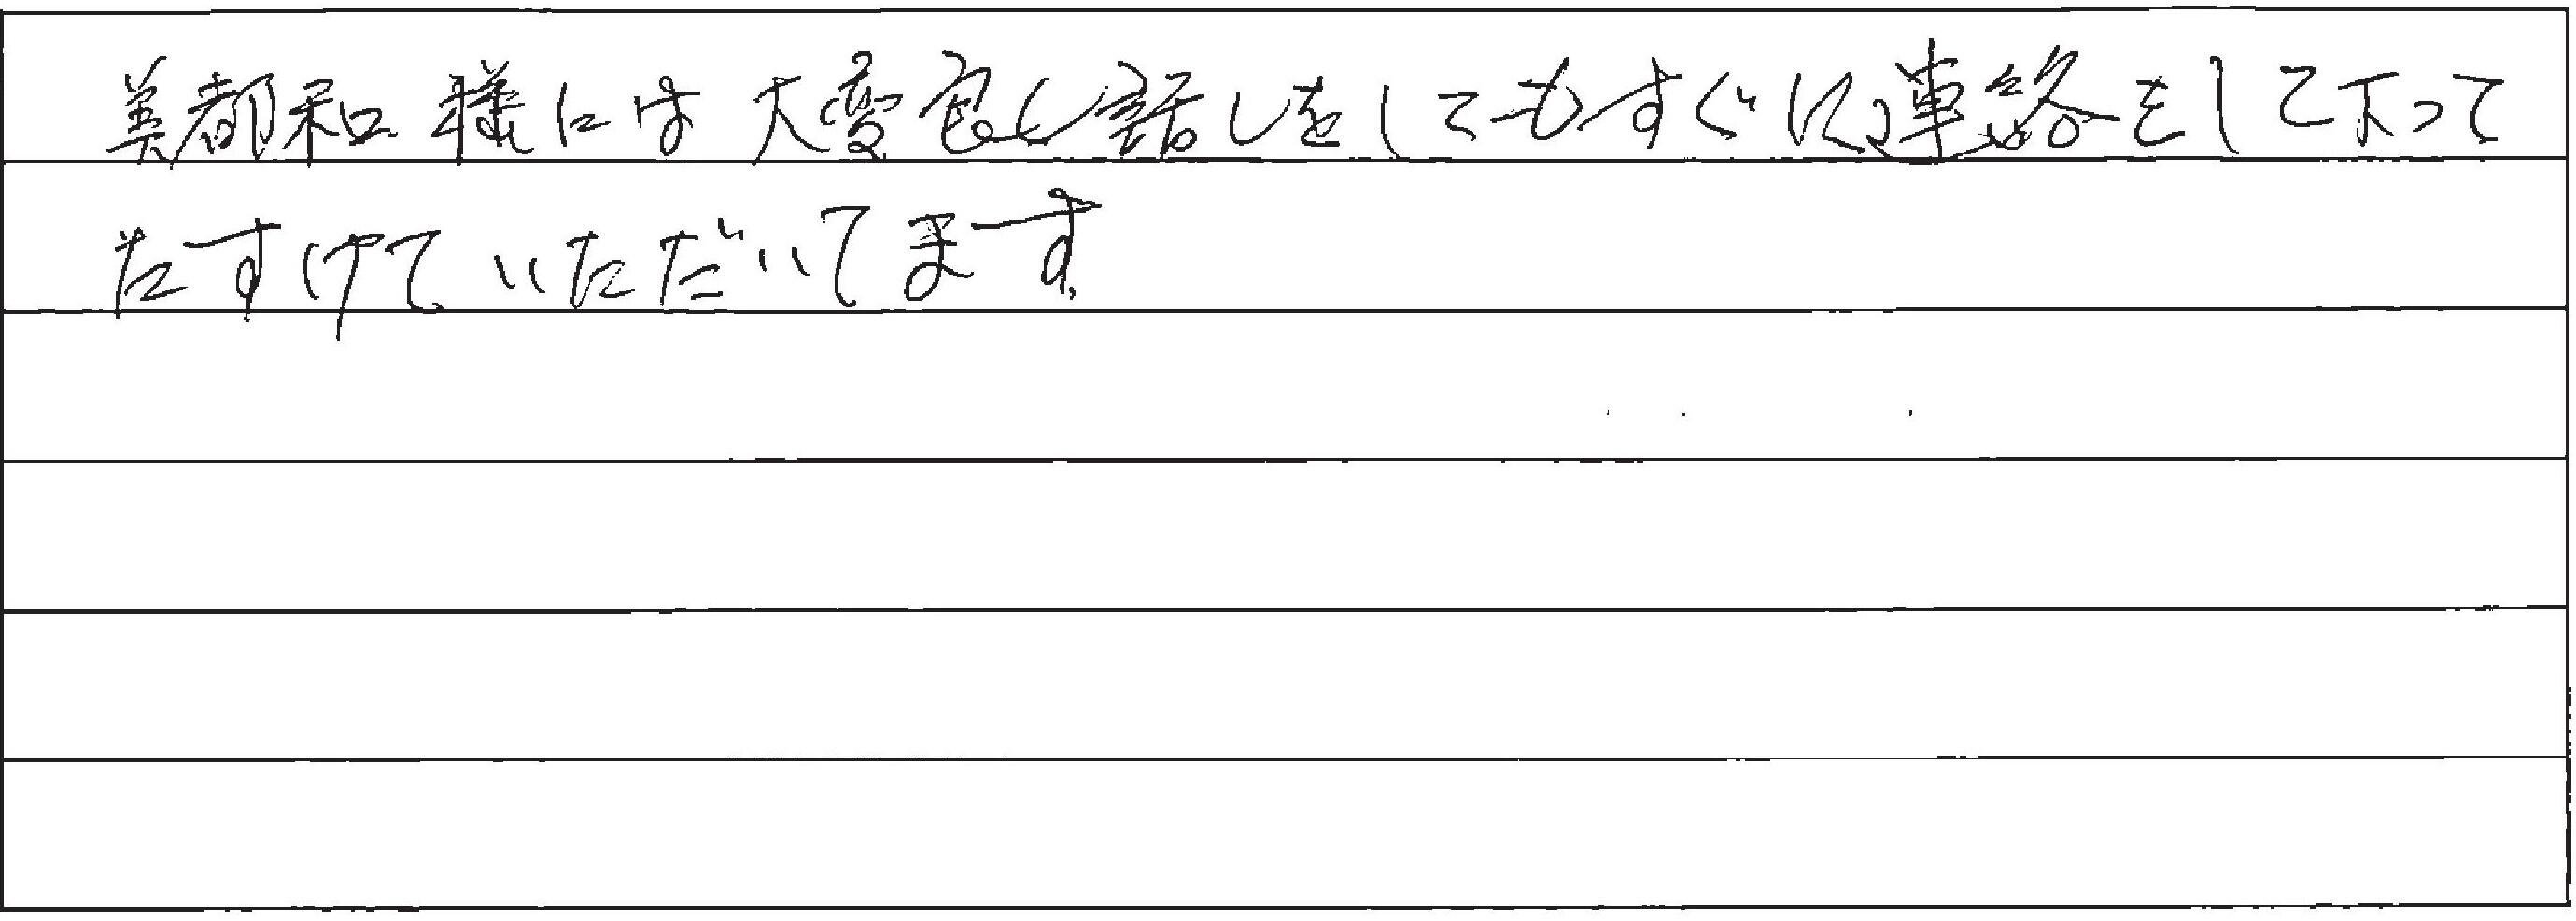 美都和様には大変良く話しをしてもすぐに連絡をして下って
たすけていただいてます